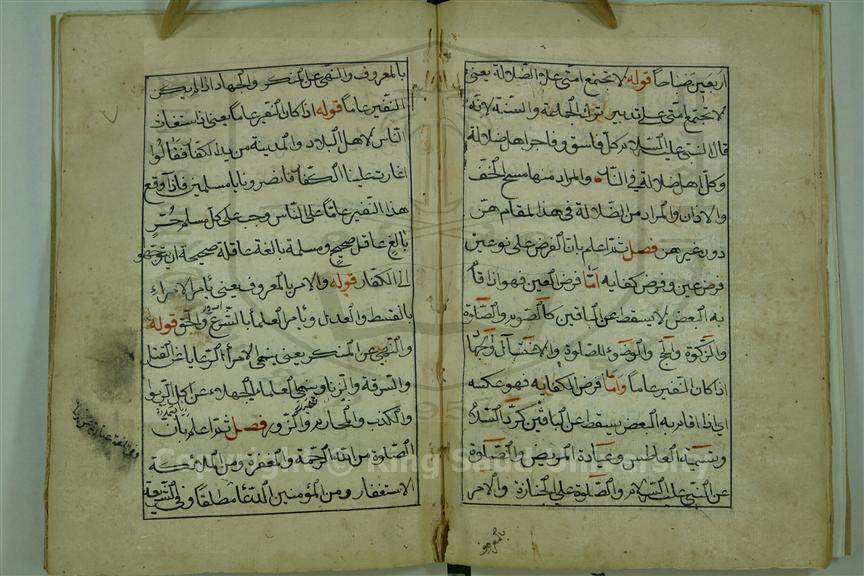 اربعين صباحا قوله لا تجتمع امتى على الضلالة يعنى
لا تجتمع امتى على تدبير ترك الجماعة والسنة لانه
قال النبى عليه السلام كل فاسق وفاجر اهل ضلالة
وكل اهل ضلالة فى النار والمراد منها مسح الخف
والاذان والمراد من الضلالة فى هذا المقام هن
دون غيرهن فصل ثم اعلم بان الفرض على نوعين
فرض عين وفرض كفاية اما فرض العين فهو اذا قام
به البعض لا يسقط عن الباقين كالصوم والصلوة
والزكوة والحج والوضوء للصلوة والاغتسال
اذا كان النفير عاما واما فرض الكفاية فهو عكسه
اى اذا قام به البعض يسقط عن الباقين كرد السلام
وتسمية العاطس وعيادة المريض والصلوة
عن النبى عليه السلام والصلوة على الجنازة والامر
بالمعروف
بالمعروف والنهى عن المنكر والجهاد اذا لم يكن
النفير عاما قوله اذا كان النفير عاما يعنى اذا ستغاث
الناس لاهل البلاد والمدينة من يد الكفار فقالوا
اغارت علينا الكفار فانصرونا يا مسلمين فاذا وقع
هذا النفير عاما على الناس وجب على كل مسلم حر
بالغ عاقل صحيح ومسلمة بالغة عاقلة صحيحة ان يتوجهوا
الى الكفار قوله والامر بالمعروف يعنى يامر الامراء
بالقسط والعدل ويامر العلماء بالشرع والحق قوله
والنهى عن المنكر يعنى ينهى الامراء الرعايا عن القتل
والسرقة والزنا وينهى العلماء الجهلاء عن اكل الربوا
والكذب والمحارم والزور فصل ثم اعلم بان
الصلوة من الله الرحمة والمغفرة ومن الملائكة
الاستغفار ومن المؤمنين الدعاء مطلقا وفى الشريعة
Copyright © King Saud University